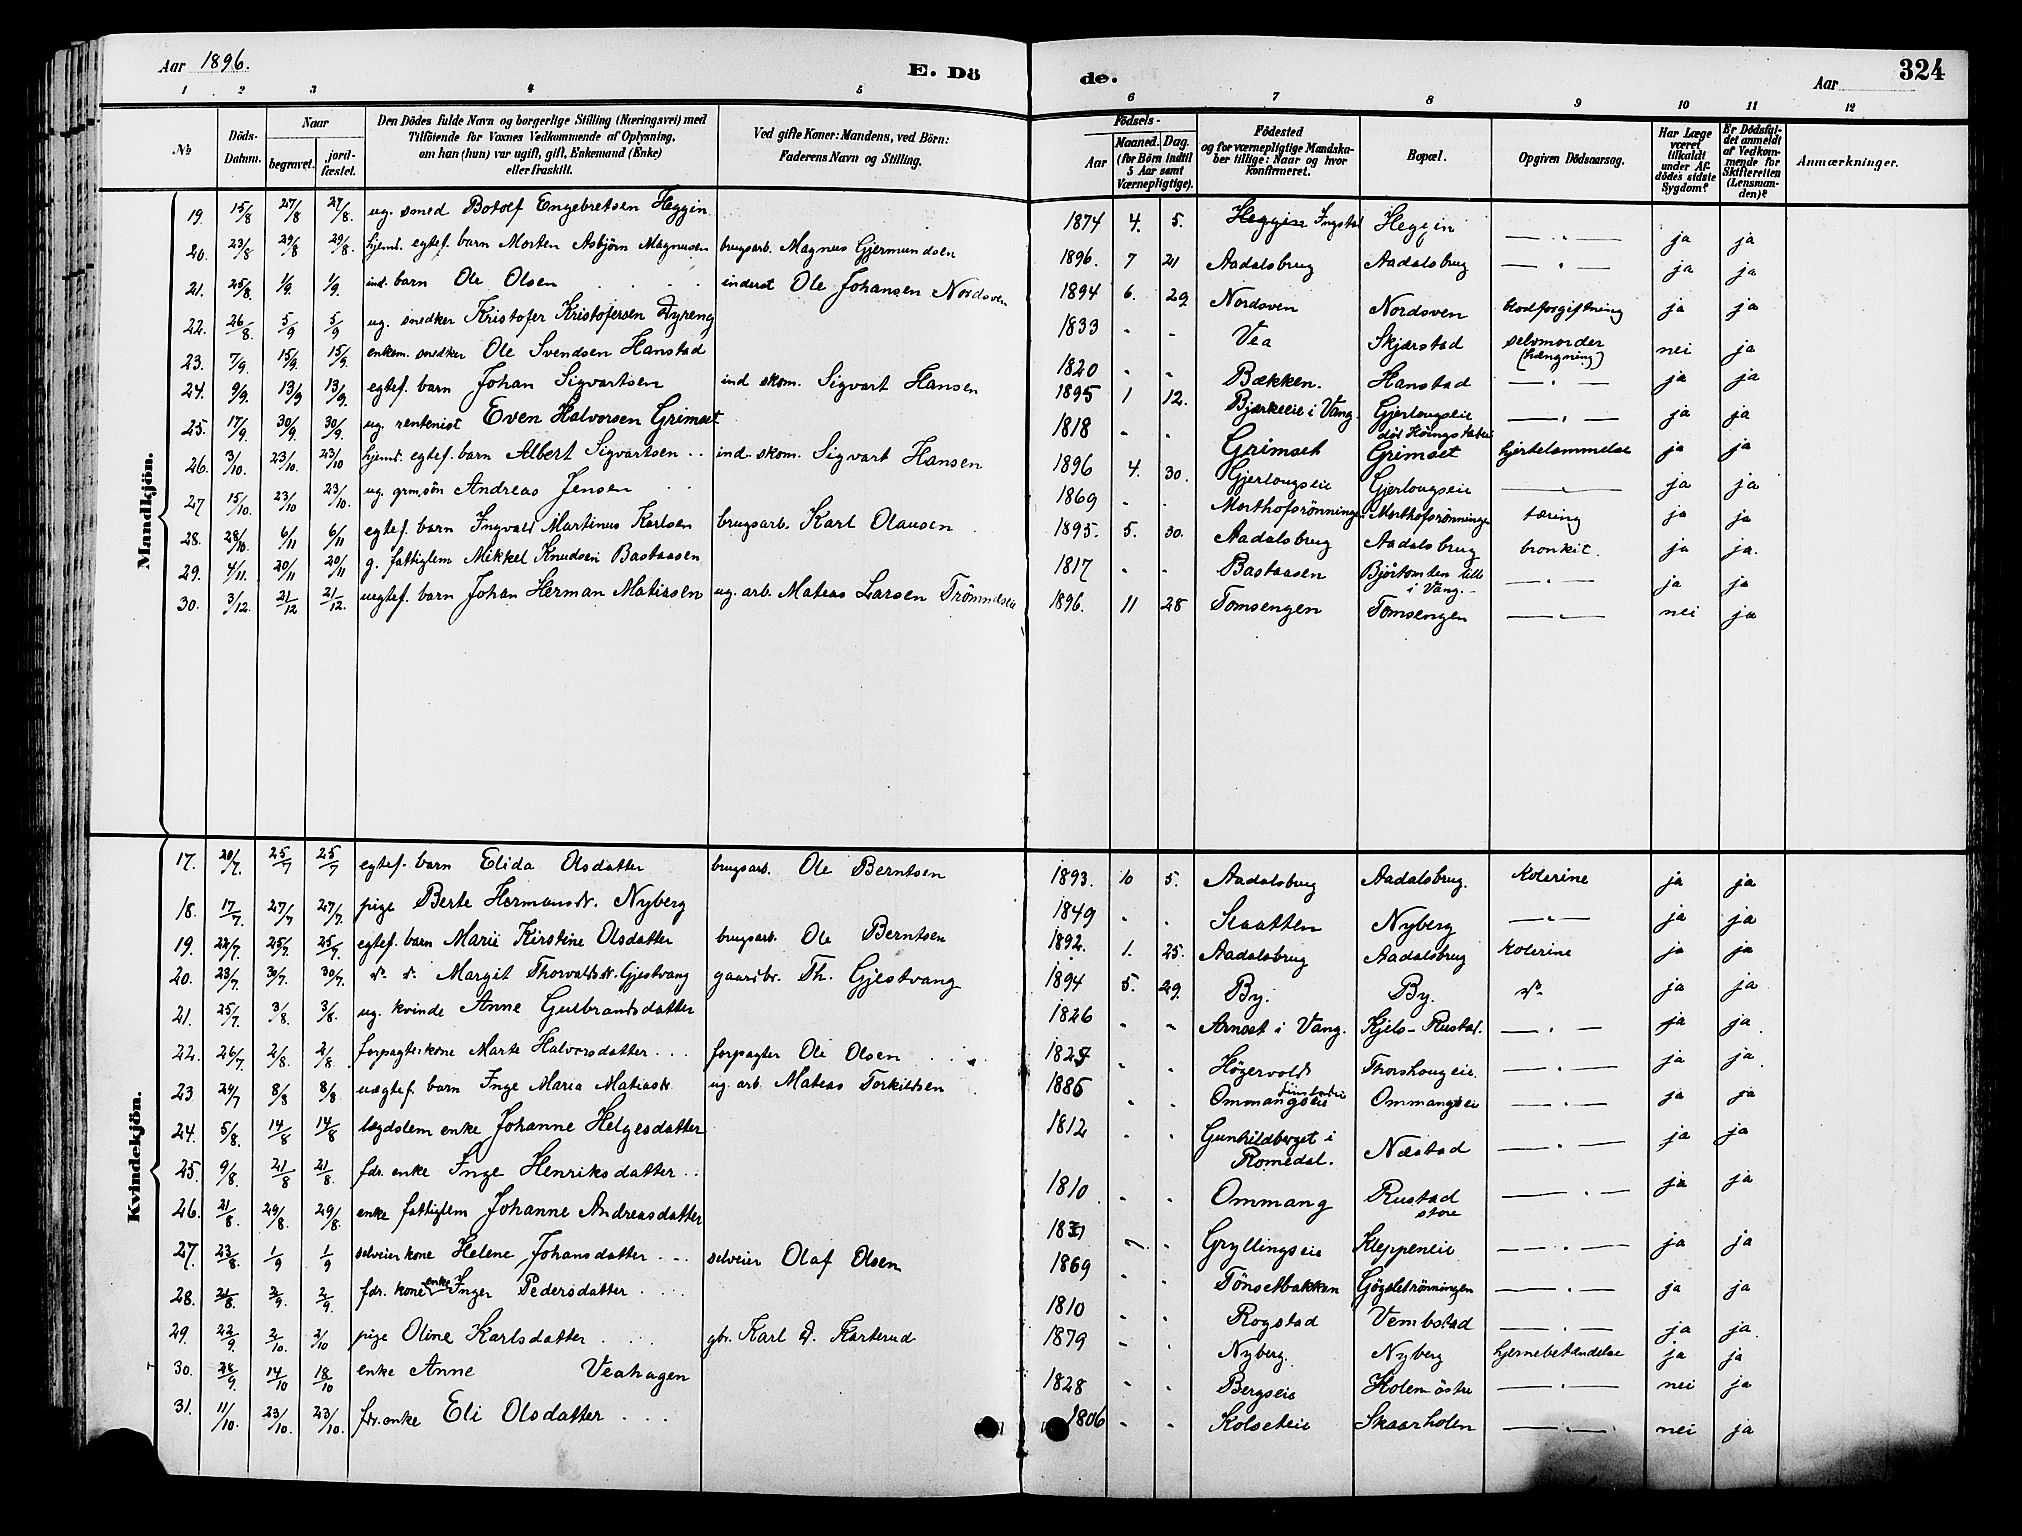 Aar 1896.
E. Dö
de.
Aar
324
1 2 3 4 5 6 7 8 9 10 11 12
No
Döds-Datum.
Naar
begravet.
jord-fæstet.
Den Dödes fulde Navn og borgerlige Stilling (Næringsvei) med
Tilföiende for Voxnes Vedkommende af Oplysning,
om han (hun) var ugift, gift, Enkemand (Enke)
eller fraskilt.
Ved gifte Koner: Mandens, ved Börn:
Faderens Navn og Stilling.
Födsels-
Aar
Maaned. Dag.
(for Börn indtil
5 Aar samt
Værnepligtige).
Födested
og for værnepligtige Mandska-
ber tillige: Naar og hvor
konfirmeret.
Bopæl.
Opgiven Dödsaarsag.
Har Læge
været
tilkaldt
under Af-
dödes sidste
Sygdom?
Er Dödsfal-
det anmeldt
af Vedkom-
mende for
Skifteretten
(Lensman-
den)?
Anmærkninger.
Mandkjön.
19. 15/8 27/8 27/8. ug. smed Botolf Engebretsen Heggin 1874 4. 5. Heggin Heggin — " — ja ja
20. 23/8 29/8 29/8. hjemd. egtef. barn Morten Asbjørn Magnusen brugsarb. Magnus Gjermundsen 1896. 7 21 Aadalsbrug Aadalsbrug — " — ja ja
21. 25/8. 1/9. 1/9. ind. barn Ole Olsen inderst Ole Johansen Nordsven 1894 6. 29 Nordsven Nordsven blodforgiftning ja ja
22. 26/8 5/9 5/9 ug. snedker Kristofer Kristofersen Dyreng 1833 - - Vea Skjærstad selvmorder (hængning) nei ja
23. 7/9. 15/9. 15/9. enkem. snedker Ole Svendsen Hanstad 1820 - - Bækken. Hanstad — " — ja ja
24. 9/9. 13/9 13/9. egtef. barn Johan Sigvartsen ind skom. Sigvart Hansen 1895 1 12. Bjerkeeie i Vang. Gjerlougseie — " — ja ja
25. 17/9. 30/9. 30/9. ug. rentenist Even Halvorsen Grimset 1818 - - Grimset Grimset hjertelammelse ja ja
26. 3/10. 23/10. 23/10 hjemd. egtef. barn Albert Sigvartsen ind. skom. Sigvart Hansen 1896 4. 30. Gjerlougseie Gjerlougseie — " — ja ja
27 15/10. 23/10 23/10. ug. grmsön Andreas Jensen 1869 - - Morthofsrønningen Morthofsrønningen tæring ja ja
28. 28/10. 6/11 6/11 egtef. barn Ingvald Martinus Karlsen brugsarb. Karl Olausen 1895. 5. 30. Aadalsbrug Aadalsbrug bronkit. ja ja.
29. 4/11. 20/11 20/11 g. fattiglem Mikkel Knudsen Bastaasen 1817 - - Bastaasen Bjørtomten lille i Vang. — " — ja ja
30. 3/12. 21/12 21/12. uegtef. barn Johan Herman Matiasen ug. arb. Mateas Larsen 1896. 11 28 Tomsengen Tomsengen — " — nei ja
Kvindekjön.
17. 20/7. 25/7 25/7 egtef. barn Elida Olsdatter brugsarb. Ole Berntsen 1893. 10 5. Aadalsbrug Aadalsbrug. Kolerine ja ja
18. 17/7. 27/7 27/7. pige Berte Hermansdr. Nyberg 1849 - - Slaatten Nyberg — " — ja ja
19. 22/7. 25/7. 25/7. egtef. barn Marie Kirstine Olsdatter brugsarb. Ole Berntsen 1892. 1. 25. Aadalsbrug Aadalsbrug Kolerine ja ja
20. 23/7. 30/7. 30/7. do. do. Margit Thorvaldsdr. Gjestvang gaardbr. Th. Gjestvang 1894 5. 29. By. By. do ja ja
21. 25/7. 3/8. 3/8. ug. kvinde Anne Gulbrandsdatter 1826 - - Arnset i Vang. Kjels-Rustad. — " — ja ja
22. 26/7. 2/8. 2/8. forpagterkone Marte Halvorsdatter forpagter Ole Olsen Högervold Thorshougeie. — " — ja ja
23 29/7 8/8 8/8 uægtef. barn Inge Maria Matiasdr. ug. arb. Mateas Torkildsen 1886 - - Ommangseie Ommangseie — " — ja ja
24. 5/8. 14/8 14/8 lægdslem enke Johanne Helgesdatter 1812 - - Gunhildberget i Romedal. Næstad — " — ja ja
25. 9/8. 21/8 21/8. fdr. enke Inge Henriksdatter 1810 - - Ommang Rustad store — " — ja ja
26. 21/8. 29/8. 29/8. enke fattiglem Johanne Andreasdatter Gryllingseie Kleppeneie — " — ja ja
27. 23/8. 1/9 1/9 selveierkone Helene Johansdatter selveier Olaf Olsen 1869 - - Tönsetbakken Gögsletrönningen — " — ja ja
28. 21/8. 2/9. 2/9. fdr. kone enke Inger Pedersdatter 1810 - - Rogstad Vembstad — " — ja ja.
29. 22/9. 2/10. 2/10 pige Oline Karlsdatter gbr. Karl A. Karterud 1879 - - Nyberg. Nyberg hjernebetændelse ja ja
30. 28/9. 14/10 18/10 enke Anne Veahagen 1828 - - Bergseie Holen östre — " — nei ja
31. 11/10. 23/10. 23/10. fdr. enke Eli Olsdatter 1806 - - Kolseteie Skaarholen — " — nei ja